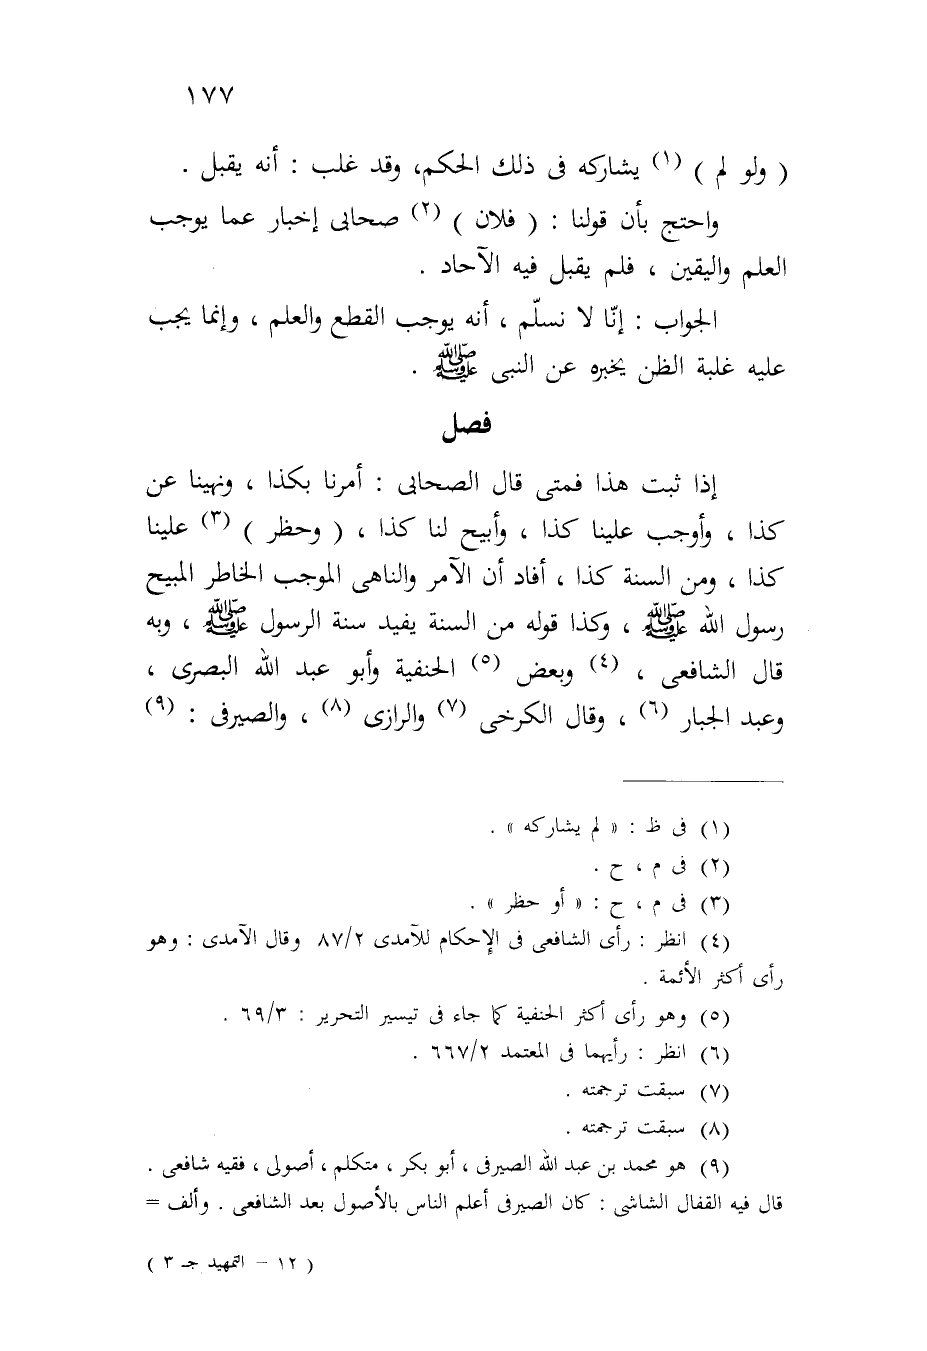 ١٧٧
( ولو لم ) (١) يشاركه فى ذلك الحكم، وقد غلب : أنه يقبل .
واحتج بأن قولنا : ( فلان ) (٢) صحابى إخبار عما يوجب
العلم واليقين ، فلم يقبل فيه الآحاد .
الجواب : إنّا لا نسلّم ، أنه يوجب القطع والعلم ، وإنما يجب
عليه غلبة الظن يخبره عن النبى ﷺ .
فصل
إذا ثبت هذا فمتى قال الصحابى : أمرنا بكذا ، ونهينا عن
كذا ، وأوجب علينا كذا ، وأبيح لنا كذا ، ( وحظر ) (٣) علينا
كذا ، ومن السنة كذا ، أفاد أن الآمر والناهى الموجب الخاطر المبيح
رسول الله ﷺ ، وكذا قوله من السنة يفيد سنة الرسول ﷺ ، وبه
قال الشافعى ، (٤) وبعض (٥) الحنفية وأبو عبد الله البصرى ،
وعبد الجبار (٦) ، وقال الكرخى (٧) والرازى (٨) ، والصيرفى : (٩)
(١) فى ظ : « لم يشاركه » .
(٢) فى م ، ح .
(٣) فى م ، ح : « أو حظر » .
(٤) انظر : رأى الشافعى فى الإحكام للآمدى ٨٧/٢ وقال الآمدى : وهو
رأى أكثر الأئمة .
(٥) وهو رأى أكثر الحنفية كما جاء فى تيسير التحرير : ٦٩/٣ .
(٦) انظر : رأيهما فى المعتمد ٦٦٧/٢ .
(٧) سبقت ترجمته .
(٨) سبقت ترجمته .
(٩) هو محمد بن عبد الله الصيرفى ، أبو بكر ، متكلم ، أصولى ، فقيه شافعى .
قال فيه القفال الشاشى : كان الصيرفى أعلم الناس بالأصول بعد الشافعى . وألف =
( ١٢ - التمهيد جـ ٣ )